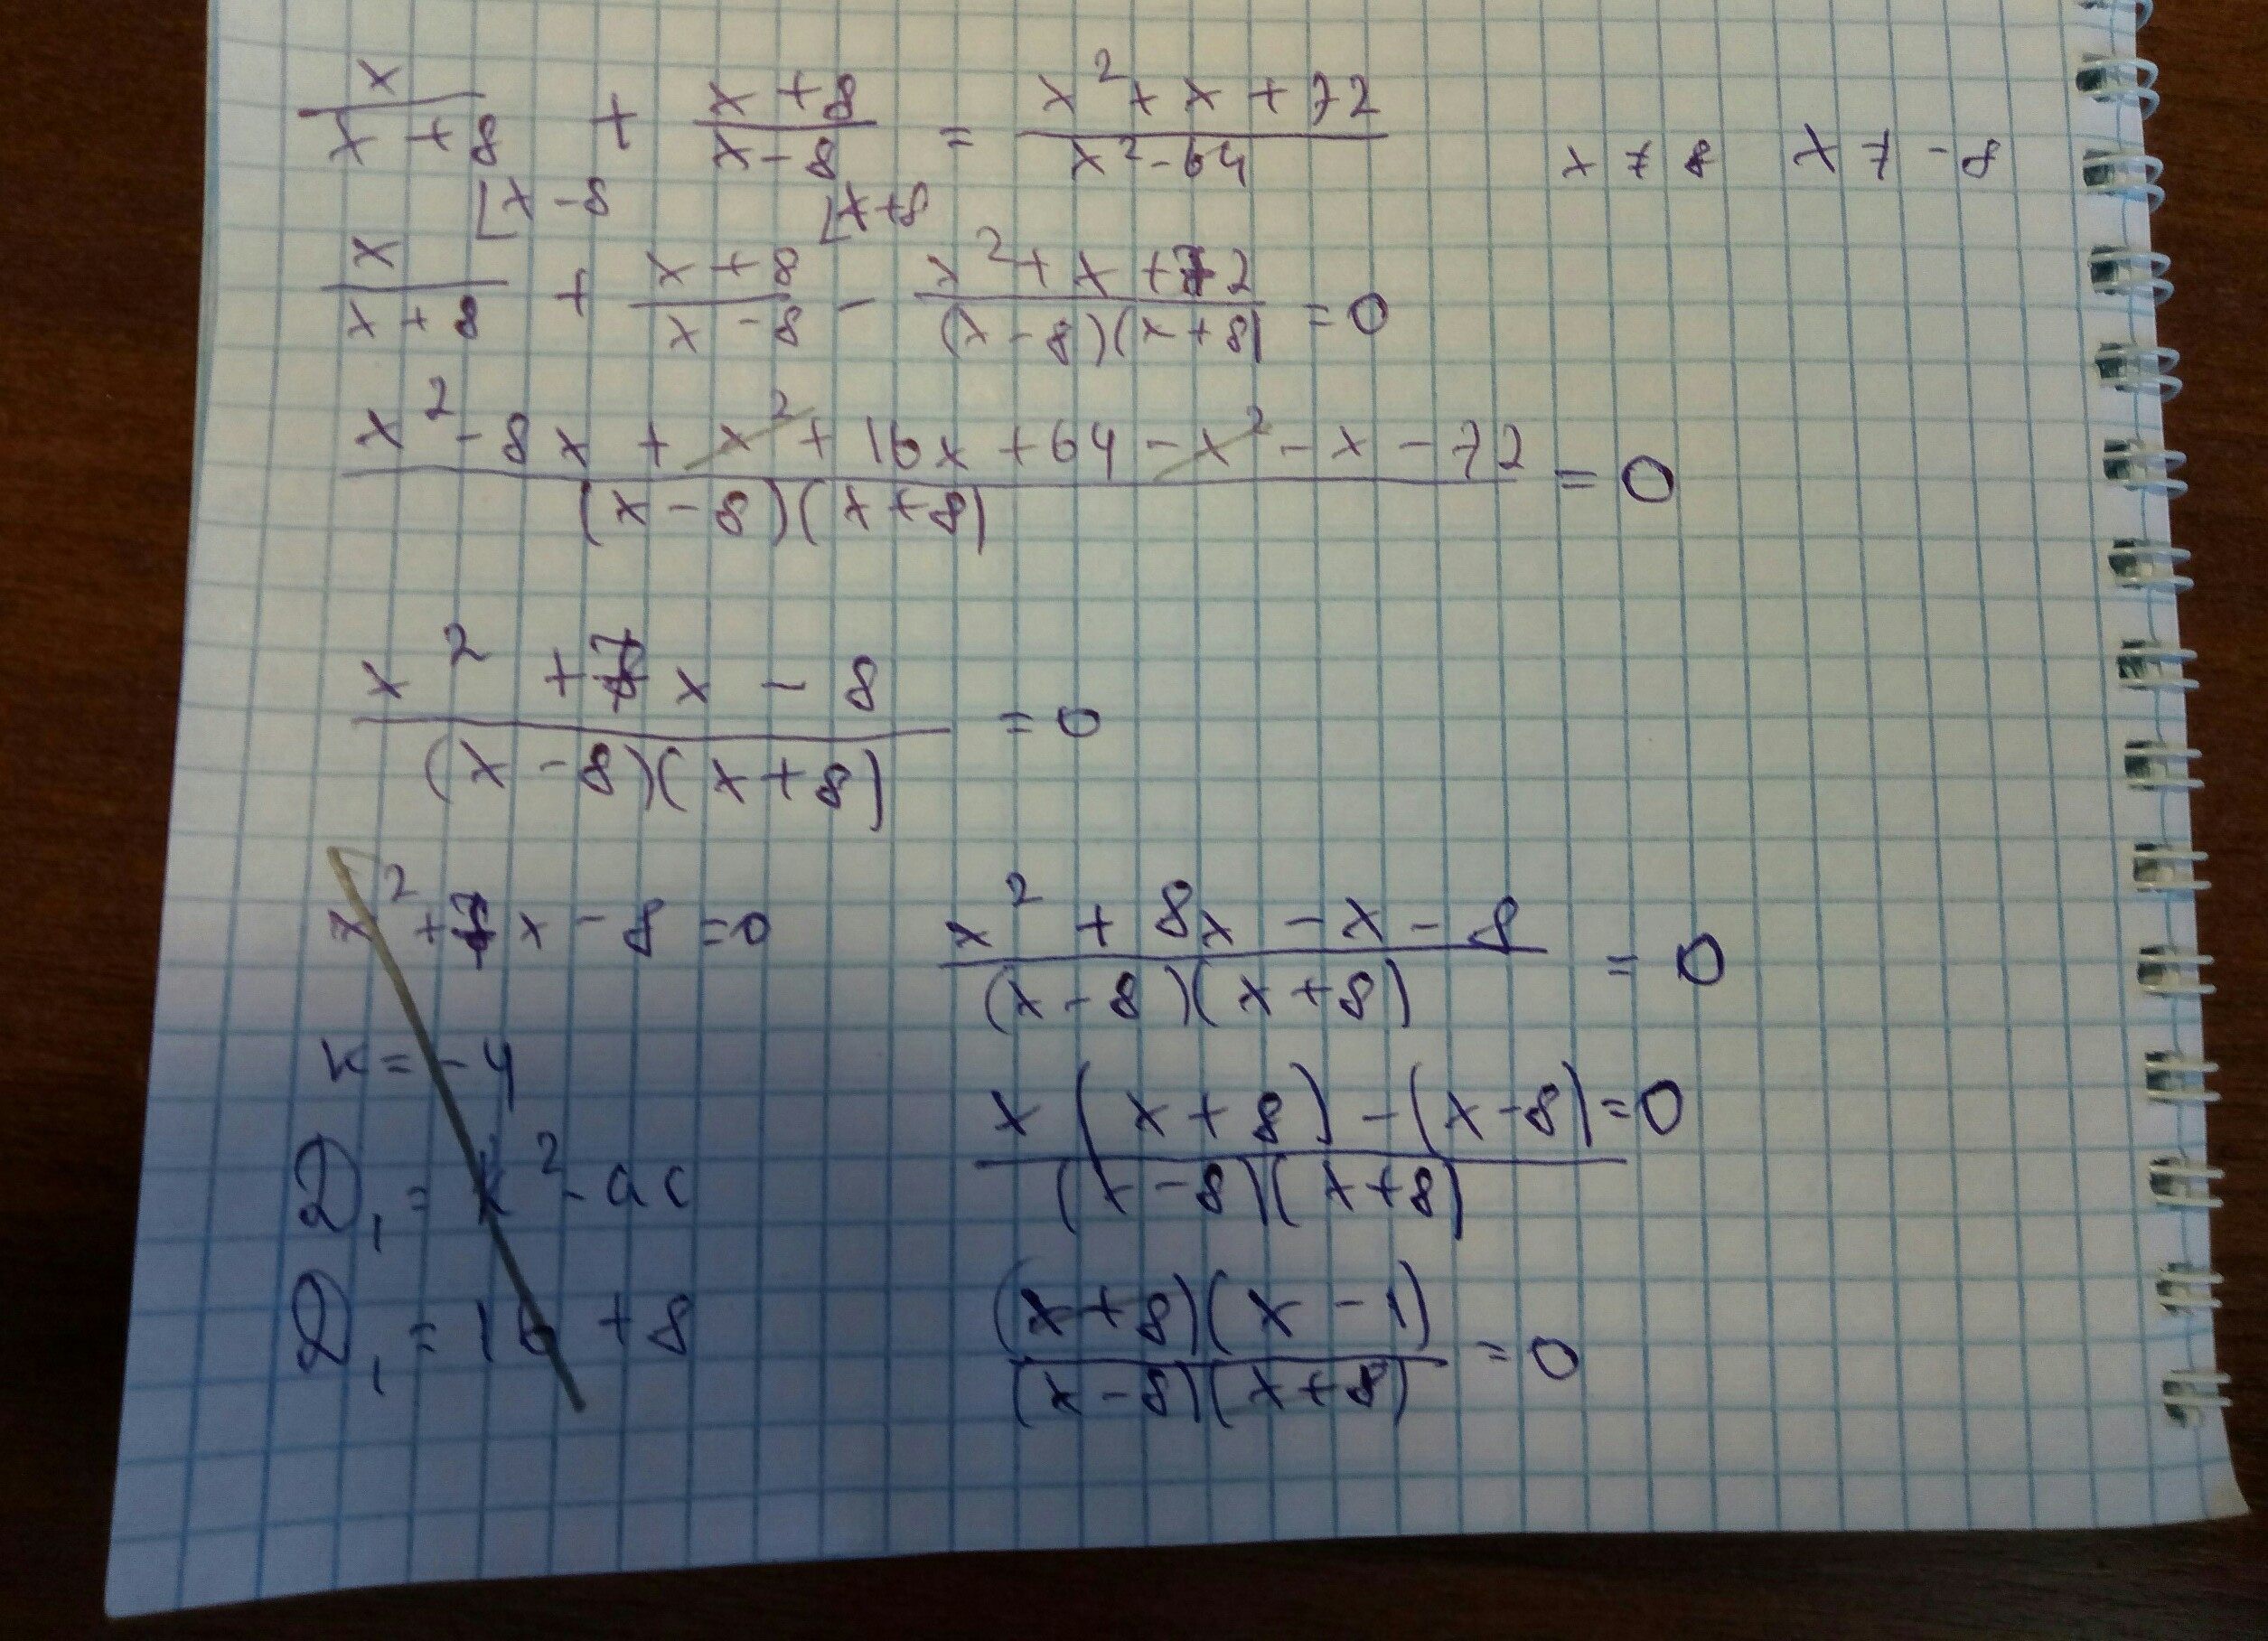 x/(x+8) + (x+8)/(x-8) = (x²+x+72)/(x²-64)   x ≠ 8   x ≠ -8
⌊x-8   ⌊x+8
x/(x+8) + (x+8)/(x-8) - (x²+x+72)/((x-8)(x+8)) = 0
(x²-8x+x²+16x+64-x²-x-72)/((x-8)(x+8)) = 0
(x²+7x-8)/((x-8)(x+8)) = 0
x²+7x-8=0
k=-4
D₁=k²-ac
D₁=16+8
(x²+8x-x-8)/((x-8)(x+8)) = 0
(x(x+8)-(x-8))/((x-8)(x+8)) = 0
((x+8)(x-1))/((x-8)(x+8)) = 0